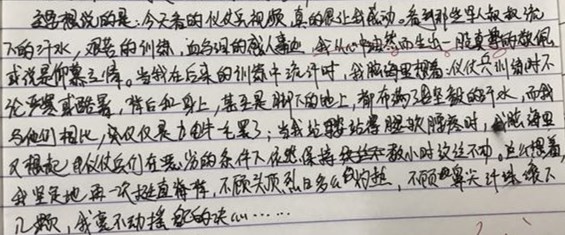 主要想说的是:今天看的仪仗兵视频,真的很让我感动。看到那些军人叔叔流
下的汗水,艰苦的训练,血与泪的感人事迹,我从心中油然而生出一股真挚的敬佩
或说是仰慕之情。当我在后来的训练中流汗时,我脑海里想着:仪仗兵训练时不
论严寒或酷暑,背后和身上,甚至是脚下的地上,都布满了坚毅的汗水,而我
与他们相比,实仅仅是九牛一毛罢了;当我站得腿软脚疼时,我脑海里
又想起仪仗兵们在恶劣的条件下依然保持数小时纹丝不动。这么想着,
我坚定地再一次挺直脊梢,不顾头顶烈日多么的灼热,不顾鼻尖汗珠滚下
几颗,我毫不动摇的决心……